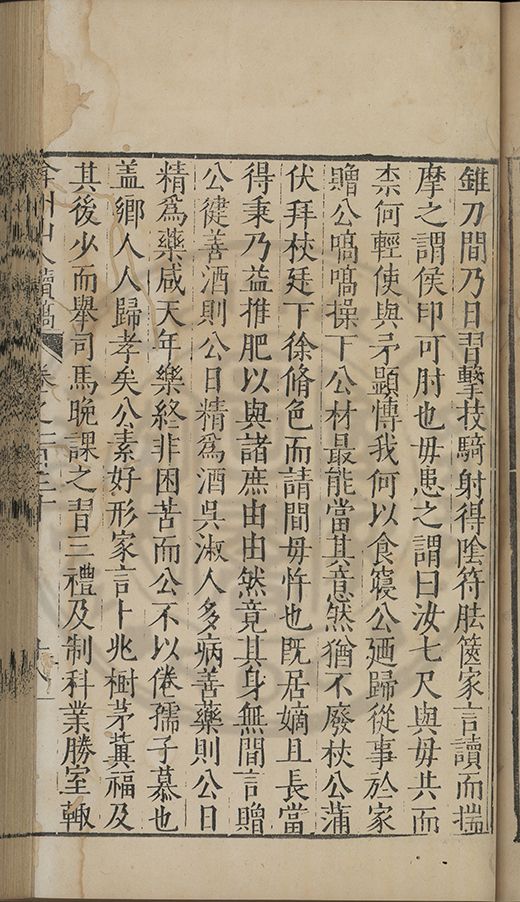 錐刀間乃日習擊技騎射得陰符胠篋家言讀而揣
摩之謂侯印可肘也毋患之謂曰汝七尺與毋共而
柰何輕使與矛顯慱我何以食寢公廼歸從事於家
贈公嗃嗃操下公材最能當其意然猶不廢杖公蒲
伏拜杖廷下徐脩色而請間毋忤也既居嫡且長當
得秉乃益推肥以與諸庶由由然竟其身無間言贈
公徤善酒則公日精爲酒吳淑人多病善藥則公日
精爲藥咸天年樂終非困苦而公不以倦孺子慕也
盖鄉人人歸孝矣公素好形家言卜兆樹茅蓂福及
其後少而舉司馬晩課之習三禮及制科業勝室輙
弇州山人續稿 卷之一百三十 十八